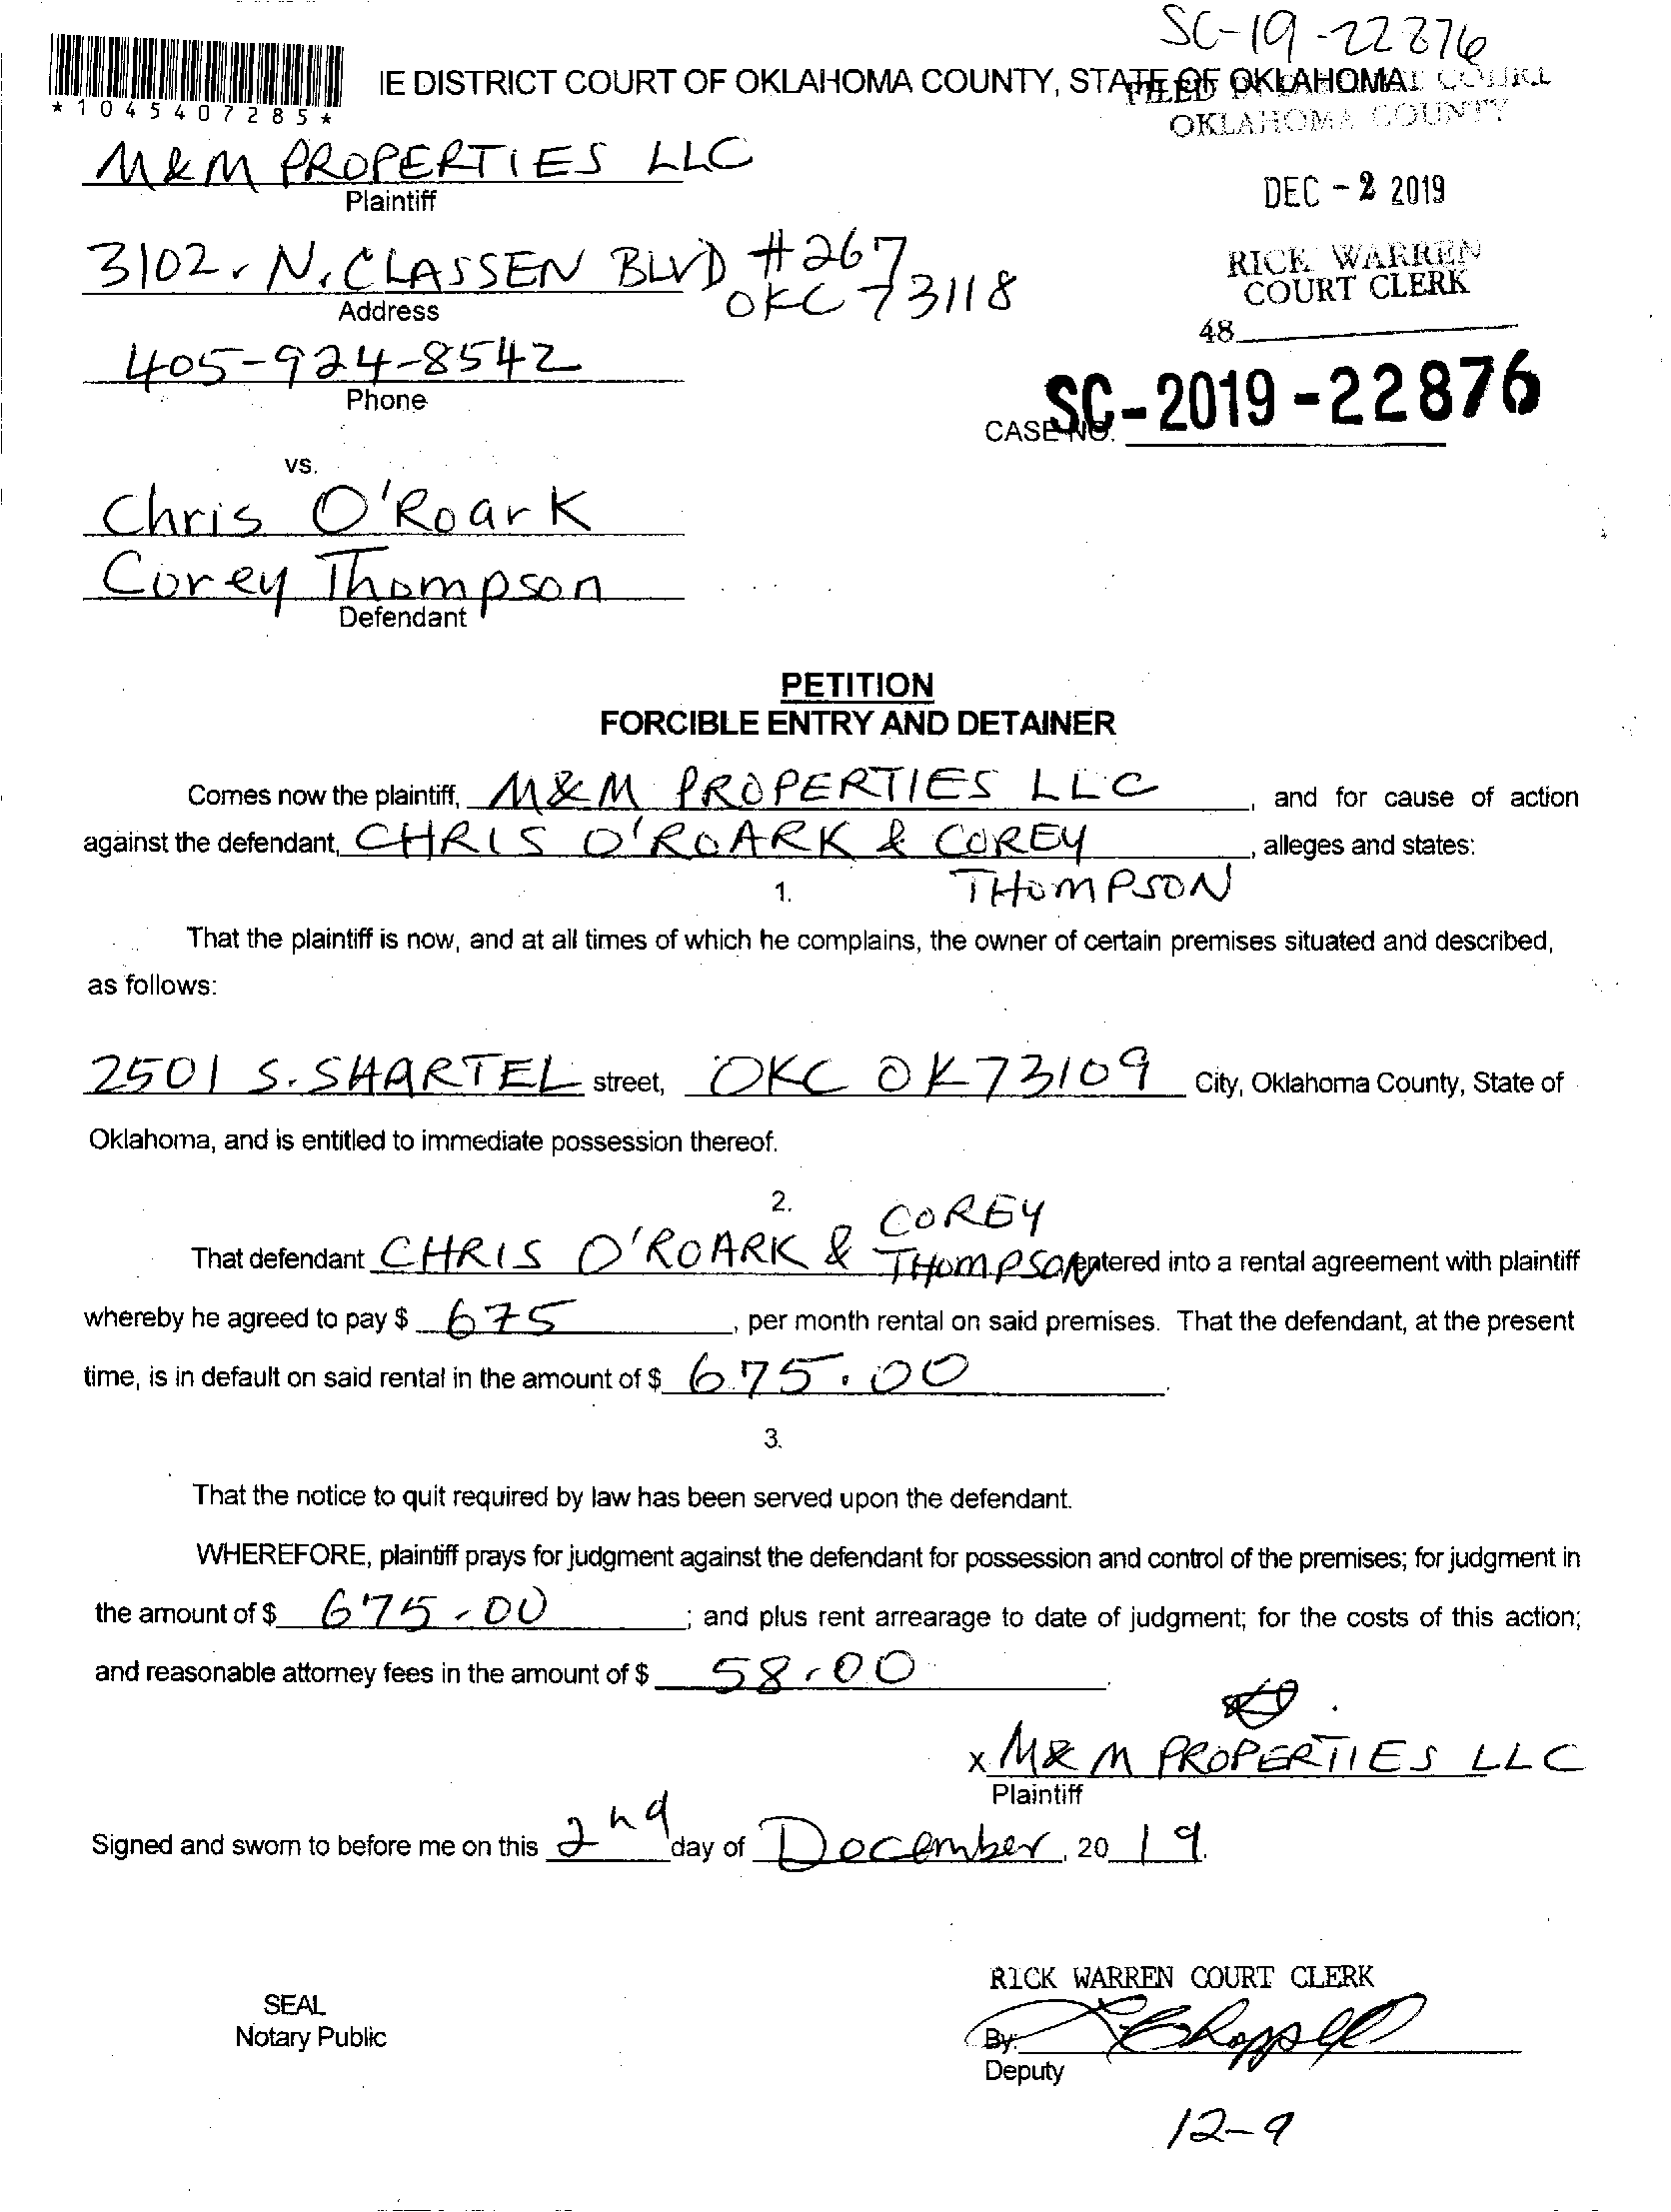 SC-19-22876
*1045407285*
IE DISTRICT COURT OF OKLAHOMA COUNTY, STATE OF OKLAHOMA
FILED COURT
OKLAHOMA COUNTY
M&M PROPERTIES LLC
Plaintiff
DEC - 2 2019
3102. N. CLASSEN BLVD #267
OKC 73118
Address
RICK WARREN
COURT CLERK
48
405-924-8542
Phone
CASE NO. SC-2019-22876
vs.
Chris O'Roark
Corey Thompson
Defendant
PETITION
FORCIBLE ENTRY AND DETAINER
Comes now the plaintiff, M&M PROPERTIES LLC, and for cause of action
against the defendant, CHRIS O'ROARK & COREY, alleges and states:
THOMPSON
1.
That the plaintiff is now, and at all times of which he complains, the owner of certain premises situated and described,
as follows:
2501 S. SHARTEL street, OKC OK 73109 City, Oklahoma County, State of
Oklahoma, and is entitled to immediate possession thereof.
2.
COREY
That defendant CHRIS O'ROARK & THOMPSON entered into a rental agreement with plaintiff
whereby he agreed to pay $ 675, per month rental on said premises. That the defendant, at the present
time, is in default on said rental in the amount of $ 675.00.
3.
That the notice to quit required by law has been served upon the defendant.
WHEREFORE, plaintiff prays for judgment against the defendant for possession and control of the premises; for judgment in
the amount of $ 675.00; and plus rent arrearage to date of judgment; for the costs of this action;
and reasonable attorney fees in the amount of $ 58.00.
x M&M PROPERTIES LLC
Plaintiff
Signed and sworn to before me on this 2nd day of December, 2019.
RICK WARREN COURT CLERK
SEAL
Notary Public
By:
Deputy
12-9